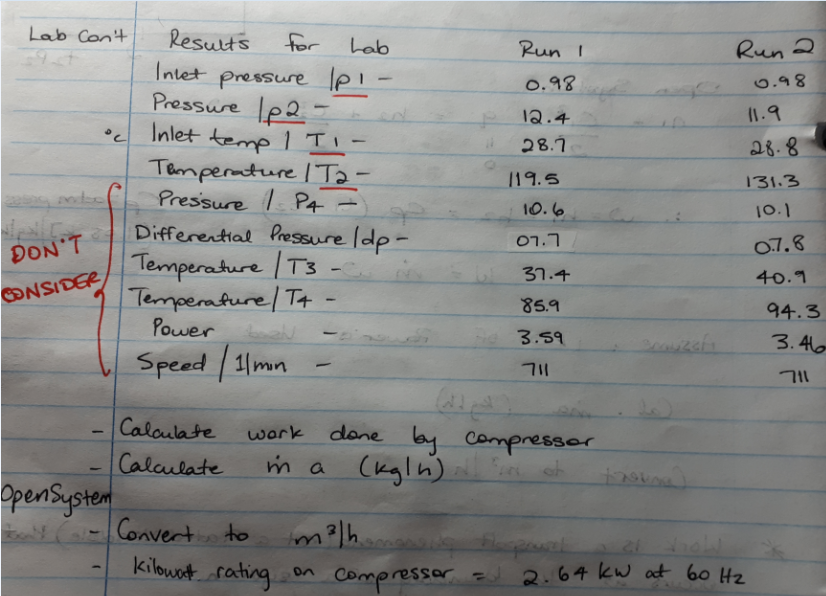 Lab Con't Results for Lab Run 1 Run 2
Inlet pressure /p1 - 0.98 0.98
Pressure /p2 - 12.4 11.9
°C Inlet temp / T1 - 28.7 28.8
Temperature / T2 - 119.5 131.3
Pressure / P4 - 10.6 10.1
Differential Pressure /dp - 07.7 07.8
DON'T CONSIDER
Temperature / T3 - 37.4 40.9
Temperature / T4 - 85.9 94.3
Power - 3.59 3.46
Speed / 1/min - 711 711
- Calculate work done by compressor
- Calculate ṁ a (kg/h)
Open System
- Convert to m³/h
- Kilowat rating on compressor = 2.64 kW at 60 Hz